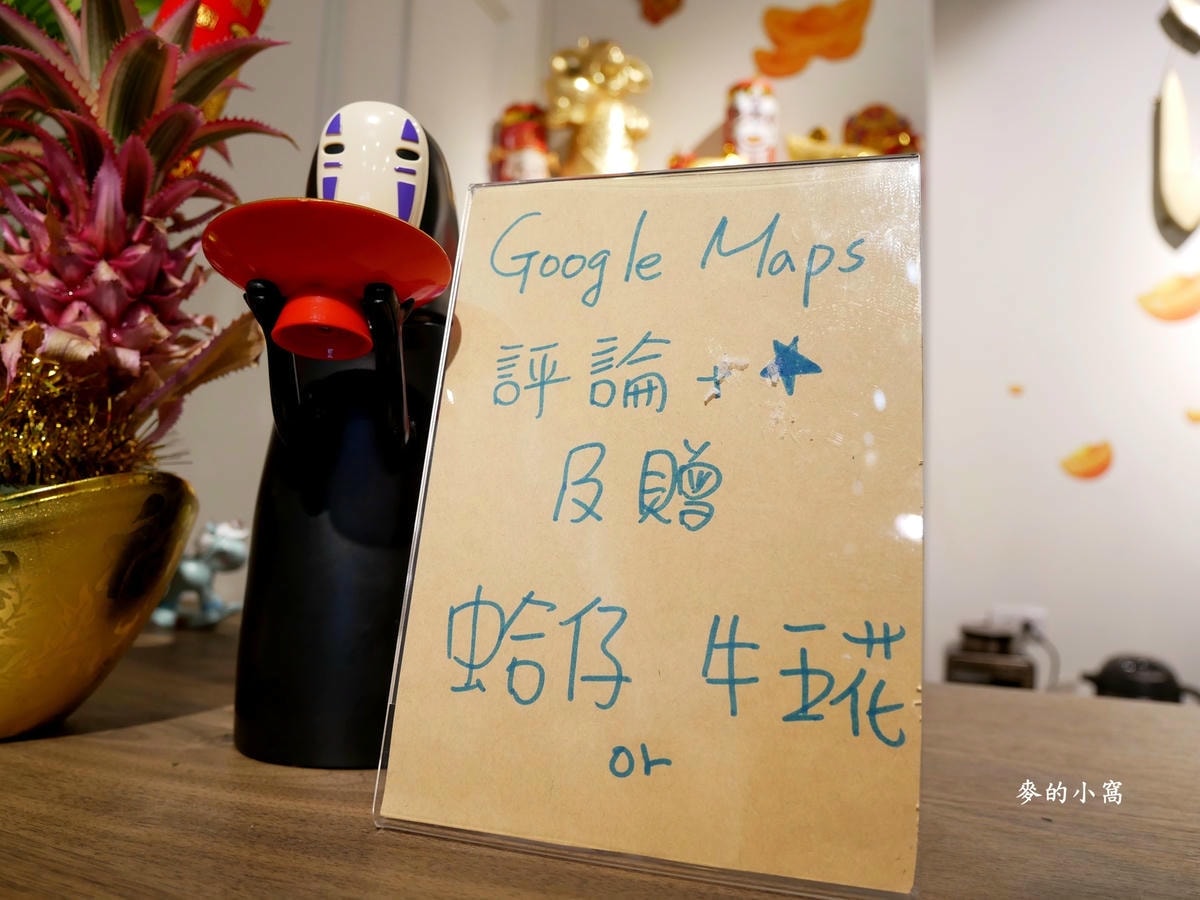 Google Maps
評論+★
及贈
蛤仔 牛五花
or
麥的小窩